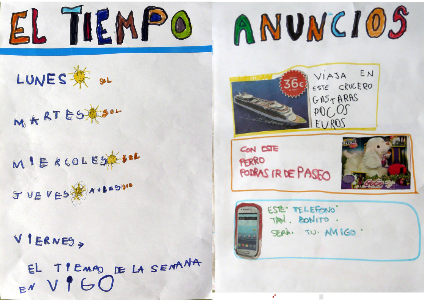 EL TIEMPO
LUNES SOL
MARTES SOL
MIERCOLES SOL
JUEVES
VIERNES
EL TIEMPO DE LA SEMANA
EN VIGO
ANUNCIOS
36€
VIAJA EN
ESTE CRUCERO
GASTARAS
POCOS
EUROS
CON ESTE
PERRO
PODRAS IR DE PASEO
ESTE TELEFONO
TAN BONITO
SERA TU AMIGO